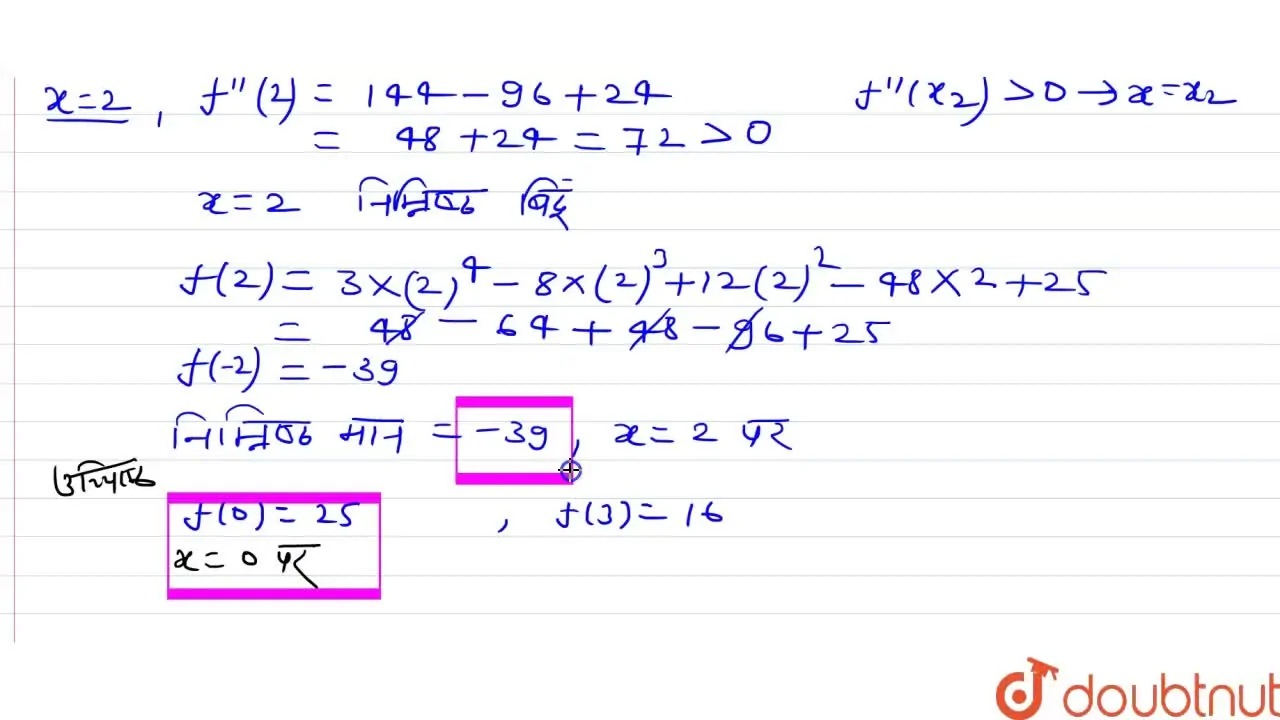 x=2 , f''(2) = 144-96+24 f''(x₂) >0 → x=x₂
= 48+24 = 72 > 0
x=2 निम्निष्ठ बिंदु
f(2) = 3×(2)⁴ - 8×(2)³ + 12(2)² - 48×2 + 25
= 48 - 64 + 48 - 96 + 25
f(-2) = -39
निम्निष्ठ मान = -39, x=2 पर
उच्चिष्ठ
f(0) = 25 , f(3) = 16
x=0 पर
doubtnut